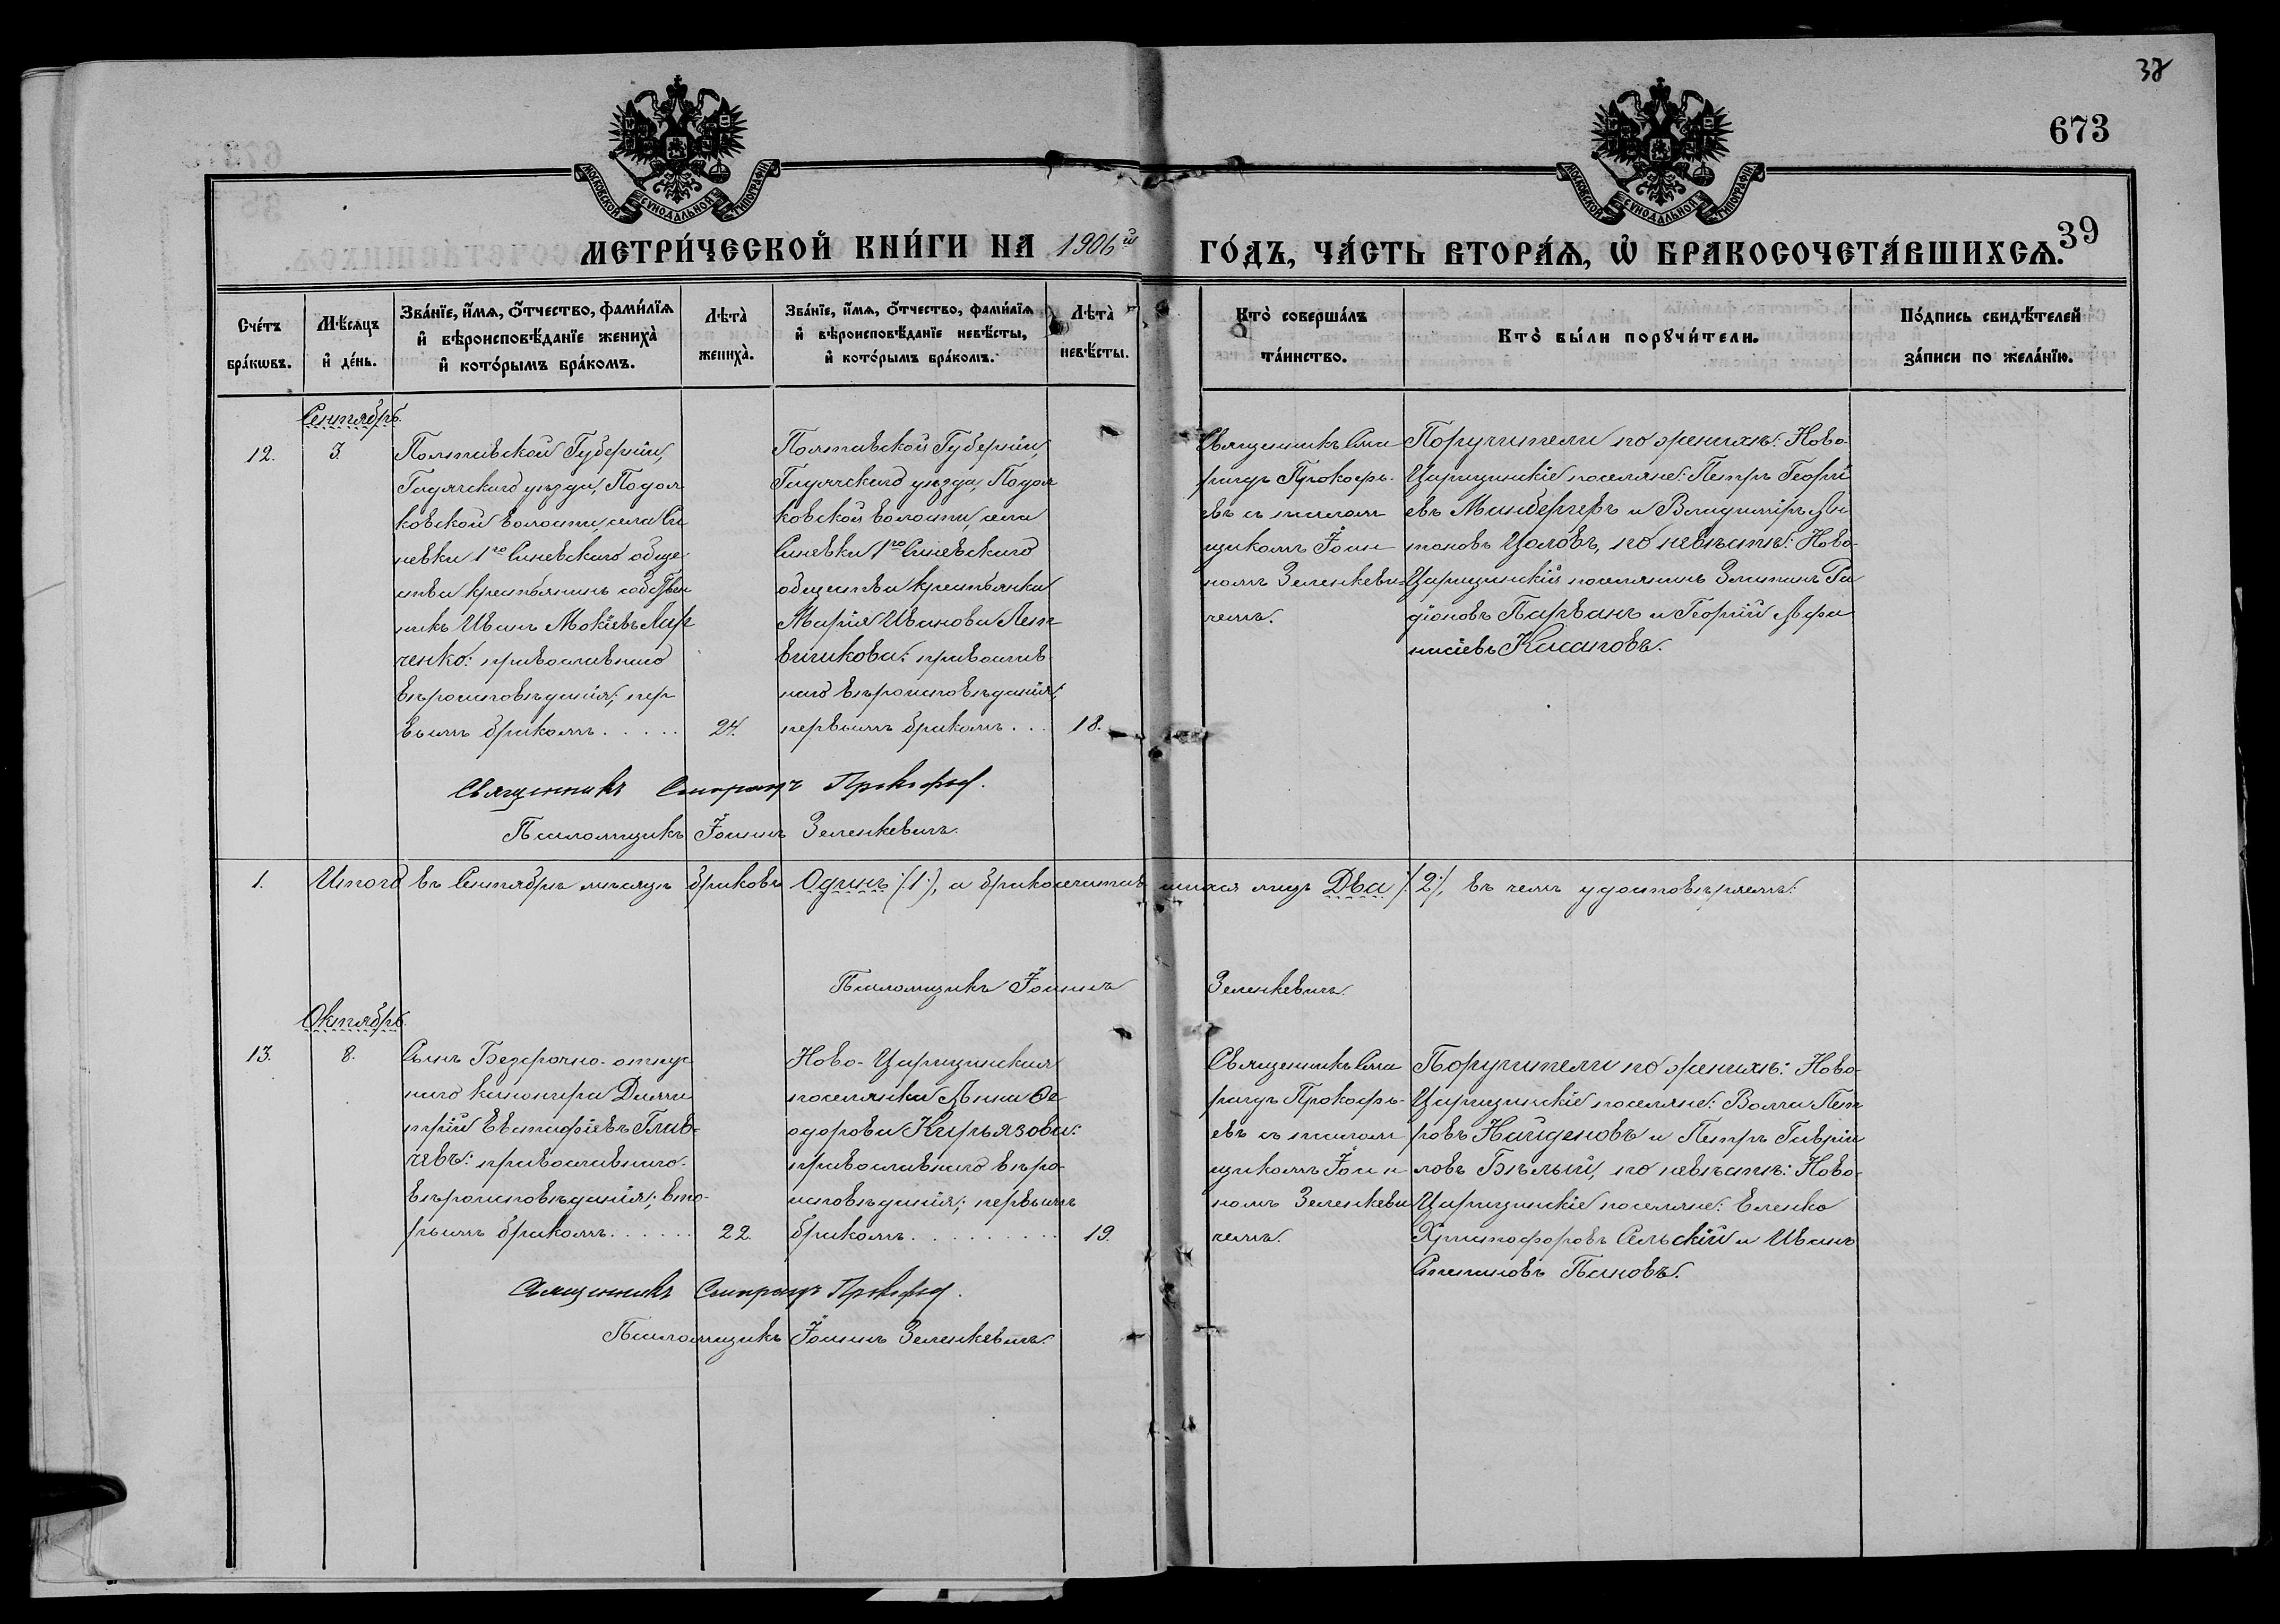 38
673
39
МОСКОВСКОЙ СѴНОДАЛЬНОЙ ТИПОГРАФІИ
МОСКОВСКОЙ СѴНОДАЛЬНОЙ ТИПОГРАФІИ
МЕТРИ́ЧЕСКОЙ КНИ́ГИ НА 1906й ГО́ДЪ, ЧА́СТЬ ВТОРА́Я, Ѡ БРАКОСОЧЕТА́ВШИХСѦ.
Сче́тъ
бра́кѡвъ.
Мѣ́сяцъ
и҆ де́нь.
Зва́нїе, и҆́мя, ѻ҆́тчество, фами́лїя
и҆ вѣроисповѣ́данїе жениха̀
и҆ кото́рымъ бра́комъ.
Лѣта̀
жениха̀.
Зва́нїе, и҆́мя, ѻ҆́тчество, фами́лїя
и҆ вѣроисповѣ́данїе невѣ́сты,
и҆ кото́рымъ бра́комъ.
Лѣта̀
невѣ́сты.
Кто̀ соверша́лъ
та́инство.
Кто̀ бы́ли порꙋчи́тели.
По́дпись свидѣ́телей
за́писи по жела́нїю.
Сентябрь.
12.
3.
Полтавской Губерніи,
Гадячскаго уѣзда, Подол
ковской волости, села Си
невки 1го Синевскаго обще
ства крестьянинъ собствен
никъ Иванъ Мокіевъ Лар
ченко: православнаго
вѣроисповѣданія; пер
вымъ бракомъ.....
24.
Полтавской Губерніи,
Гадячскаго уѣзда, Подол
ковской волости, села
Синевки 1го Синевскаго
общества крестьянка
Марія Иванова Лит
винкова: православ
наго вѣроисповѣданія;
первымъ бракомъ...
18.
Священникъ Спи
ридъ Прокофь-
евъ съ псалом
щикомъ Іоан
номъ Зеленкеви-
чемъ.
Поручители по женихѣ: Ново-
Царицинскіе поселяне: Петръ Георгі
евъ Минбергеръ и Владиміръ Ан
тоновъ Цоловъ, по невѣстѣ: Ново-
Царицинскій поселянинъ Златанъ Ра
діоновъ Парванъ и Георгій Афа
насіевъ Касаповъ.
Священникъ Спиридъ Прокофьев.
Псаломщикъ Іоаннъ Зеленкевичъ.
1.
Итого въ Сентябрѣ мѣсяцѣ браковъ Одинъ /1/, а бракосочетавшихся лицъ Два /2/, въ чемъ удостовѣряемъ:
Псаломщикъ Іоаннъ Зеленкевичъ.
Октябрь.
13.
8.
Сынъ Безсрочно-отпус
наго канонира Дими
трій Евстафіевъ Глав-
чевъ: православнаго
вѣроисповѣданія; вто-
рымъ бракомъ......
22.
Ново-Царицинская
поселянка Анна Ѳе
одорова Кирьязова:
православнаго вѣро-
исповѣданія; первымъ
бракомъ.........
19.
Священникъ Спи
ридъ Прокофь-
евъ съ псалом
щикомъ Іоан
номъ Зеленкеви
чемъ.
Поручители по женихѣ: Ново-
Царицинскіе поселяне: Волчи Пет
ровъ Найденовъ и Петръ Гаврии
ловъ Бѣлый, по невѣстѣ: Ново-
Царицинскіе поселяне: Еленко
Христофоровъ Сельскій и Иванъ
Степановъ Пановъ.
Священникъ Спиридъ Прокофьев.
Псаломщикъ Іоаннъ Зеленкевичъ.